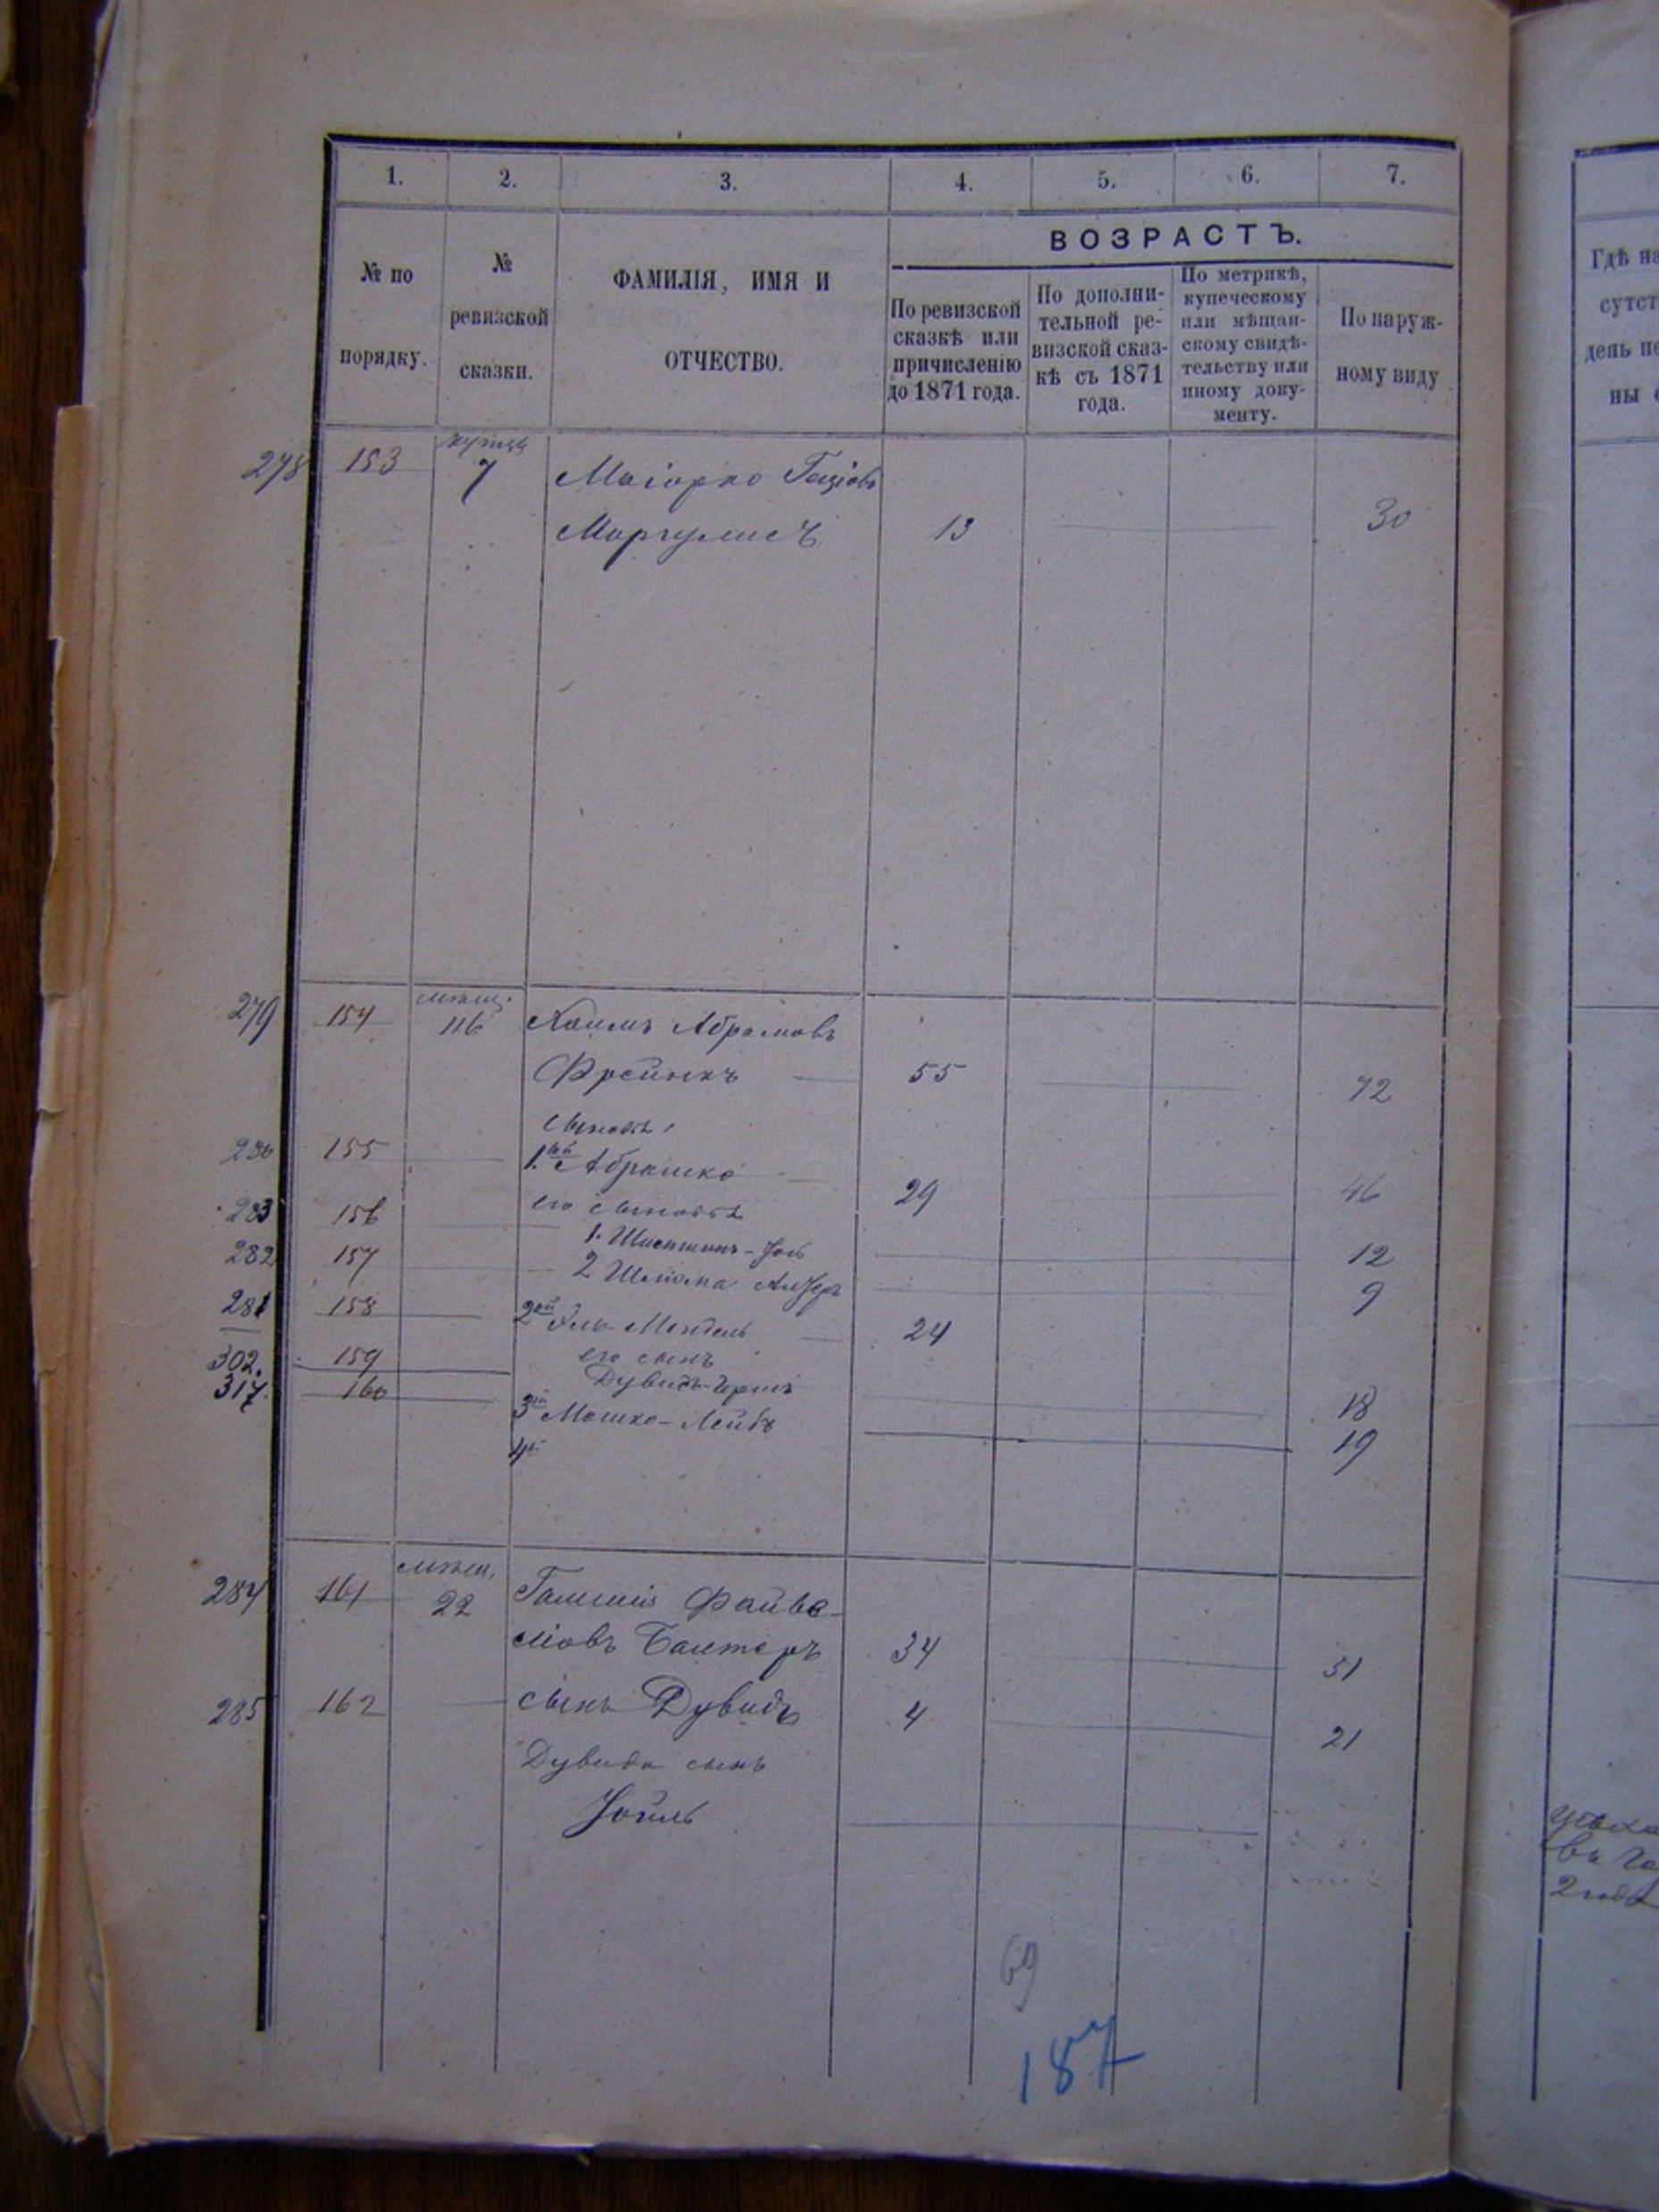 1. 2. 3. 4. 5. 6. 7.
№ по порядку.
№ ревизской сказки.
ФАМИЛІЯ, ИМЯ И
ОТЧЕСТВО.
ВОЗРАСТЪ.
По ревизской
сказкѣ или
причисленію
до 1871 года.
По дополни-
тельной ре-
визской сказ-
кѣ съ 1871
года.
По метрикѣ,
купеческому
или мѣщан-
скому свидѣ-
тельству или
иному доку-
менту.
По наруж-
ному виду
278 153 7
Маргулисъ 13 30
279 154 мѣщ. 116 Хаимъ Абрамовъ
Фрейнкъ 55 72
сыновья
280 155 1. Абрашко 29 46
его сыновья
283 156 1. 12
282 157 2 Шлома 9
281 158 2ой Мендель 24
его сынъ
302. 159 Дувидъ-Гершъ 18
317. 160 3й Мошко-Лейбъ 19
4й
284 161 мѣщ. 22 Файве-
ліовъ Балтеръ 34 51
285 162 сынъ Дувидъ 4 21
Дувида сынъ
Іойль
69
187
Гдѣ на
сутст
день пе
ны
2 года